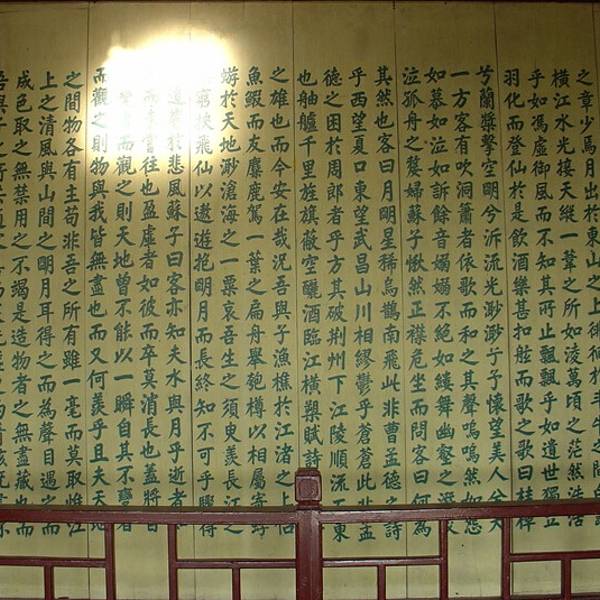 之章少焉月出於東山之上徘徊於斗牛之間白
橫江水光接天縱一葦之所如凌萬頃之茫然浩浩
乎如馮虛御風而不知其所止飄飄乎如遺世獨立
羽化而登仙於是飲酒樂甚扣舷而歌之歌曰桂棹
兮蘭槳擊空明兮泝流光渺渺于予懷望美人兮天
一方客有吹洞簫者依歌而和之其聲嗚嗚然如怨
如慕如泣如訴餘音嫋嫋不絕如縷舞幽壑之潛蛟
泣孤舟之嫠婦蘇子愀然正襟危坐而問客曰何為
其然也客曰月明星稀烏鵲南飛此非曹孟德之詩
乎西望夏口東望武昌山川相繆鬱乎蒼蒼此非孟
德之困於周郎者乎方其破荊州下江陵順流而東
也舳艫千里旌旗蔽空釃酒臨江橫槊賦詩
之雄也而今安在哉況吾與子漁樵於江渚之上侶
魚鰕而友麋鹿駕一葉之扁舟舉匏樽以相屬寄蜉
蝣於天地渺滄海之一粟哀吾生之須臾羨長江之
窮挾飛仙以遨遊抱明月而長終知不可乎驟得
遺響於悲風蘇子曰客亦知夫水與月乎逝者
而未嘗往也盈虛者如彼而卒莫消長也蓋將自
者而觀之則天地曾不能以一瞬自其不變者
而觀之則物與我皆無盡也而又何羨乎且夫天地
之間物各有主苟非吾之所有雖一毫而莫取惟江
上之清風與山間之明月耳得之而為聲目遇之而
成色取之無禁用之不竭是造物者之無盡藏也
吾與子之所共